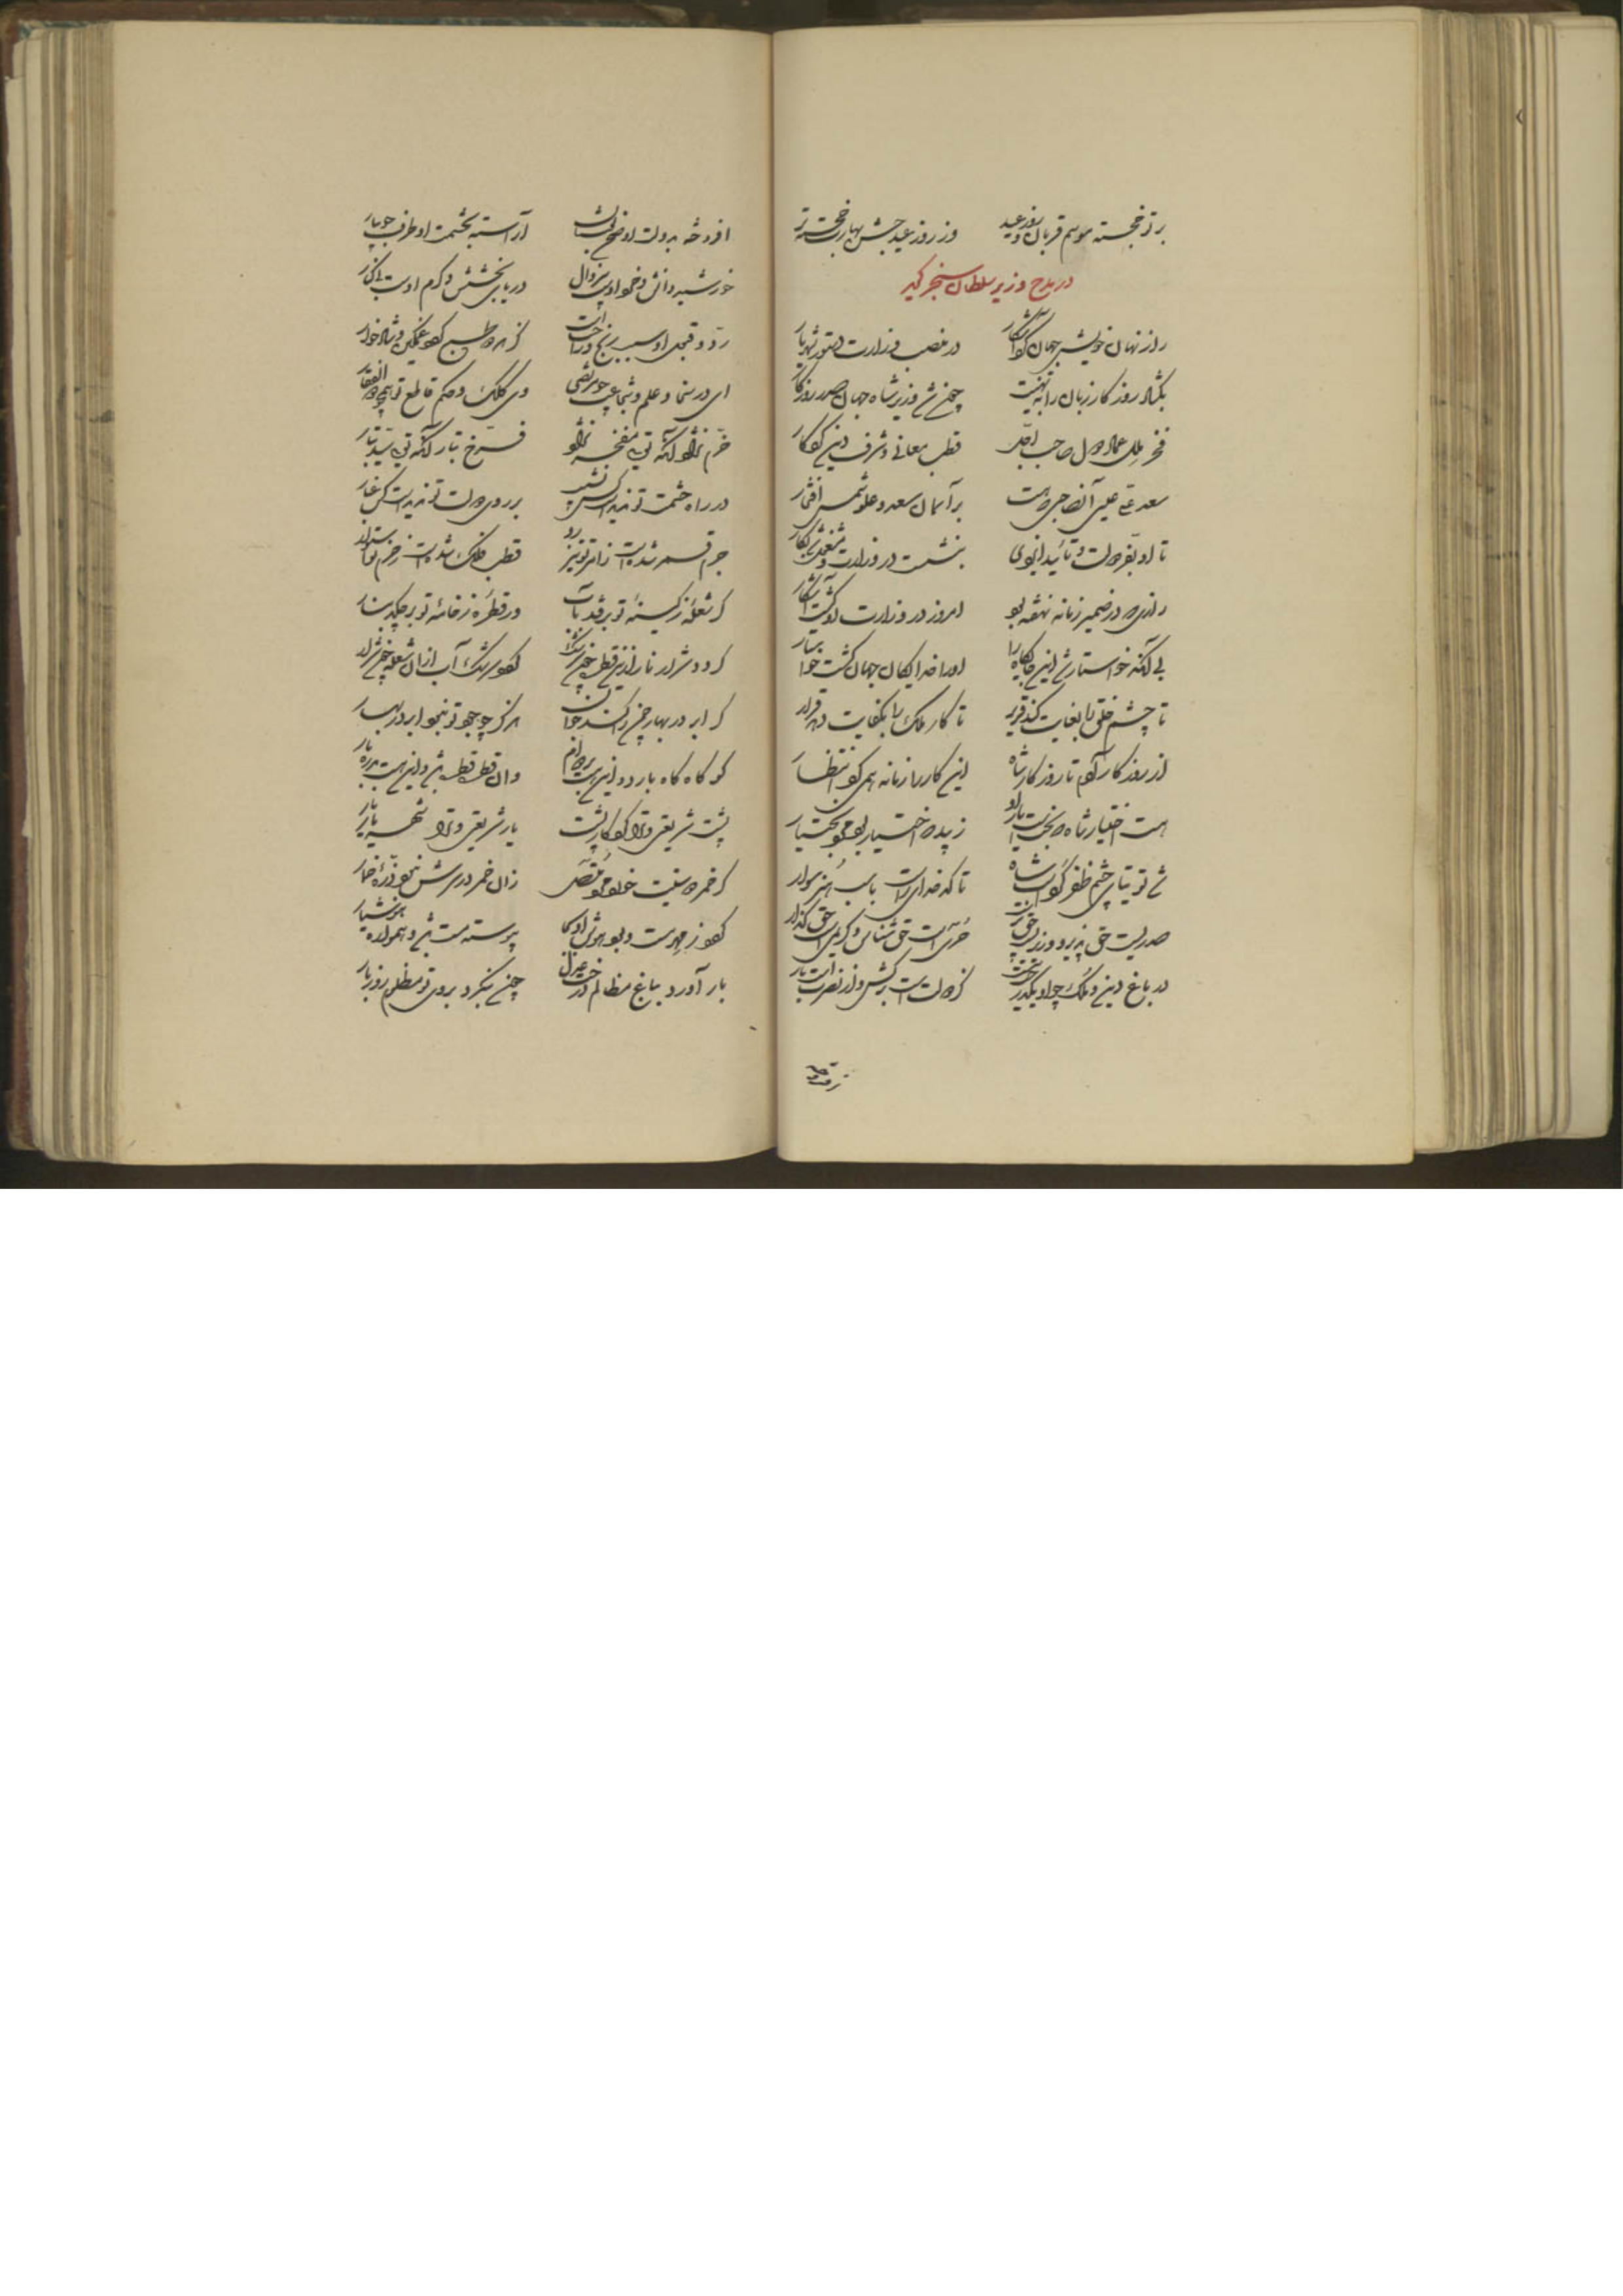 بر تو خجسته موسم قربان و روز عید وز روز عید جشن بهارت خجسته تر
در مدح وزیر سلطان سنجر گوید
راز نهان خویش جهان کرد آشکار در منصب وزارت دستور شهریار
بگشاد روزگار زبان را به تهنیت چون شد وزیر شاه جهان صدر روزگار
فخر ملل عماد دول صاحب اجل قطب معانی و شرف دین کردگار
سعد علی عیسی آن صاحبی که هست بر آسمان سعد و علو شمس افتخار
تا او بفر دولت و تأیید ایزدی بنشست در وزارت و مشغول شد بکار
رازی که در ضمیر زمانه نهفته بود امروز در وزارت او گشت آشکار
بی آنکه خواستار شد این جایگاه را او را خدایگان جهان گشت خواستار
تا چشم خلق را بعنایت کند قریر تا کار ملک را بکفایت دهد قرار
از روزگار آدم تا روزگار شاه این کار را زمانه همی کرد انتظار
هست اختیار شاه که بختست یار او زیبد که اختیار بود مرد بختیار
شد توتیای چشم ظفر گرد اسب شاه تا کدخدای اوست باسب هنر سوار
صدریست حق پذیر و وزیریست حق پرست حریست حق شناس و کریمیست حق گذار
در باغ دین و ملک چو او یک درخت نیست کز دولتست برگش و از نصرتست بار
افروخته بدولت او صحن آرآسته بحشمت او طرف جویبار
خورشید دانش و خرد اوست بی زوال دریای بخشش و کرم اوست بی کنار
رد و قبول او سبب رنج و راحت است کز هر دو طبع گردد غمگین و شادخوار
ای در سخا و علم و شجاعت چو مرتضی وی کلک و حکم قاطع تو همچو ذوالفقار
خرم نژاد آنکه تویی مفخر نژاد فرخ تبار آنکه تویی سید تبار
در راه حشمت تو ندیدست کس نشیب بر روی دولت تو ندیدست کس غبار
جرم قمر شدست ز امر تو تیز رو قطب فلک شدست ز حزم تو استوار
گر شعله ز کینهٔ تو برفتد بآب ور قطرهٔ ز خامهٔ تو برچکد بنار
گردد شرار نار از این قطره چون سرشک گردد سرشک آب از آن شعله چون شرار
گر ابر در بهار چمن را کند جوان هرگز چو جود تو نبود ابر در بهار
کو گاه گاه بارد و اینست بر دوام وان قطره قطره باشد و اینست بدره بار
پشت شریعتی و ترا کردگار پشت یار شریعتی و ترا شهریار یار
گر خمر دوستیت خورد مرد زان خمر در سرش نبود ذرهٔ خمار
گردد ز مهرت و بود پیوسته مست باشد و همواره هوشیار
بار آورد بباغ مظالم درخت عدل چون بنگرد بروی تو مظلوم روز بار